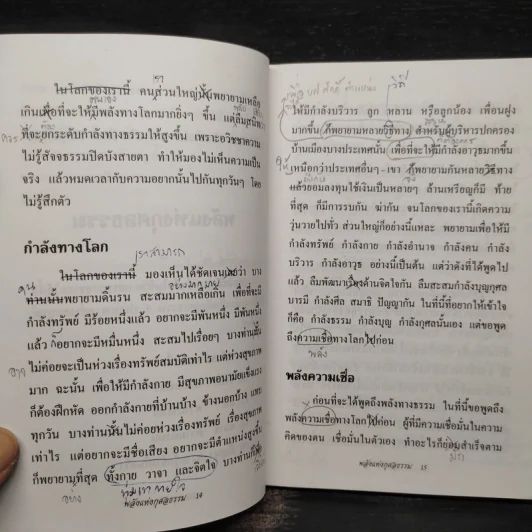 ในโลกของเรานี้ คนส่วนใหญ่นั้นพยายามเหลือ
เกินเพื่อที่จะให้มีพลังทางโลกมากยิ่งๆ ขึ้น แต่ลืมสนิท
ที่จะยกระดับกำลังทางธรรมให้สูงขึ้น เพราะอวิชชาความ
ไม่รู้สัจจธรรมปิดบังสายตา ทำให้มองไม่เห็นความเป็น
จริง แล้วหมดเวลากับความอยากนั้นไปกับทุกวันๆ โดย
ไม่รู้สึกตัว
กำลังทางโลก
ในโลกของเรานี้ มองเห็นได้ชัดเจนเลยว่า บาง
ท่านนั้นพยายามดิ้นรน สะสมมากเหลือเกิน เพื่อที่จะมี
กำลังทรัพย์ มีร้อยหนึ่งแล้ว อยากจะมีพันหนึ่ง มีพันหนึ่ง
แล้ว ก็อยากจะมีหมื่นหนึ่ง สะสมไปเรื่อยๆ บางท่านนั้น
ไม่ค่อยจะเป็นห่วงเรื่องทรัพย์สมบัติเท่าไร แต่ห่วงสุขภาพ
มาก ฉะนั้น เพื่อให้มีกำลังกาย มีสุขภาพอนามัยแข็งแรง
ก็ต้องฝึกหัด ออกกำลังกายที่บ้านบ้าง ข้างนอกบ้าง
ทุกวัน บางท่านนั้นไม่ค่อยห่วงเรื่องทรัพย์ เรื่องสุขภาพ
เท่าไร แต่อยากจะมีชื่อเสียง อยากจะมีตำแหน่งสูงขึ้น
ก็พยายามที่สุด ทั้งกาย วาจา และจิตใจ บางท่านก็
ทุ่มเท กายใจ
พลังแห่งกุศลธรรม 14
วิธี
ให้มีกำลังบริวาร ลูก หลาน หรือลูกน้อง เพื่อนฝูง
มากขึ้น ก็พยายามหลายวิธีทาง สำหรับผู้บริหารปกครอง
บ้านเมืองบางประเทศนั้น เพื่อที่จะให้มีกำลังอาวุธมากขึ้น
เหนือกว่าประเทศอื่นๆ เขา ก็พยายามกันหลายวิธีทาง
แล้วยอมลงทุนใช้เงินเป็นหลายๆ ล้านเหรียญก็มี ท้าย
ที่สุด ก็มีการรบกัน ฆ่ากัน จนโลกของเรานี้เกิดความ
วุ่นวายไปทั่ว ส่วนใหญ่ก็อย่างนี้แหละ พยายามเพื่อให้มี
กำลังทรัพย์ กำลังกาย กำลังอำนาจ กำลังคน กำลัง
บริวาร กำลังอาวุธ อย่างนี้เป็นต้น แต่ว่าดังที่ได้พูดไป
แล้ว ลืมพัฒนาเรื่องด้านจิตใจกัน ลืมสะสมกำลังบุญกุศล
บารมี กำลังศีล สมาธิ ปัญญากัน ในที่นี้ที่อยากให้เข้าใจ
ก็คือ กำลังธรรม กำลังบุญ กำลังกุศลนั้นเอง แต่ขอพูด
ถึงความเชื่อทางโลกไปก่อน
พลัง
พลังความเชื่อ
ก่อนที่จะได้พูดถึงพลังทางธรรม ในที่นี้ขอพูดถึง
พลังความเชื่อทางโลกไปก่อน ผู้ที่มีความเชื่อมั่นในความ
คิดของตน เชื่อมั่นในตัวเอง ทำอะไรก็ย่อมสำเร็จตาม
พลังแห่งกุศลธรรม 15